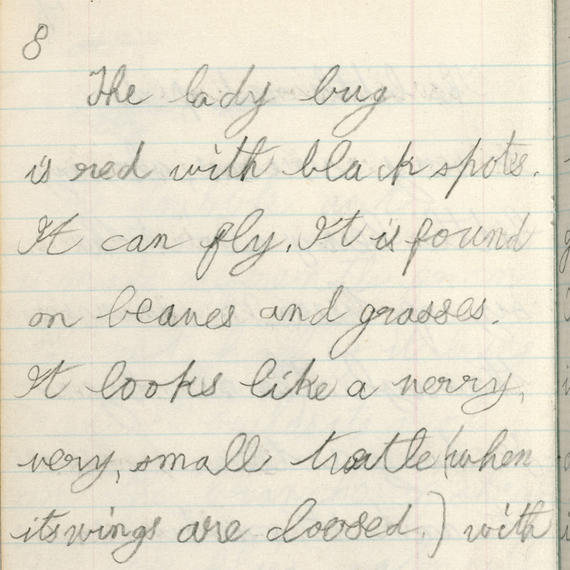 8
The lady bug
is red with black spots.
It can fly. It is found
on leaves and grasses.
It looks like a verry,
very, small tratle (when
its wings are cloosed.) with